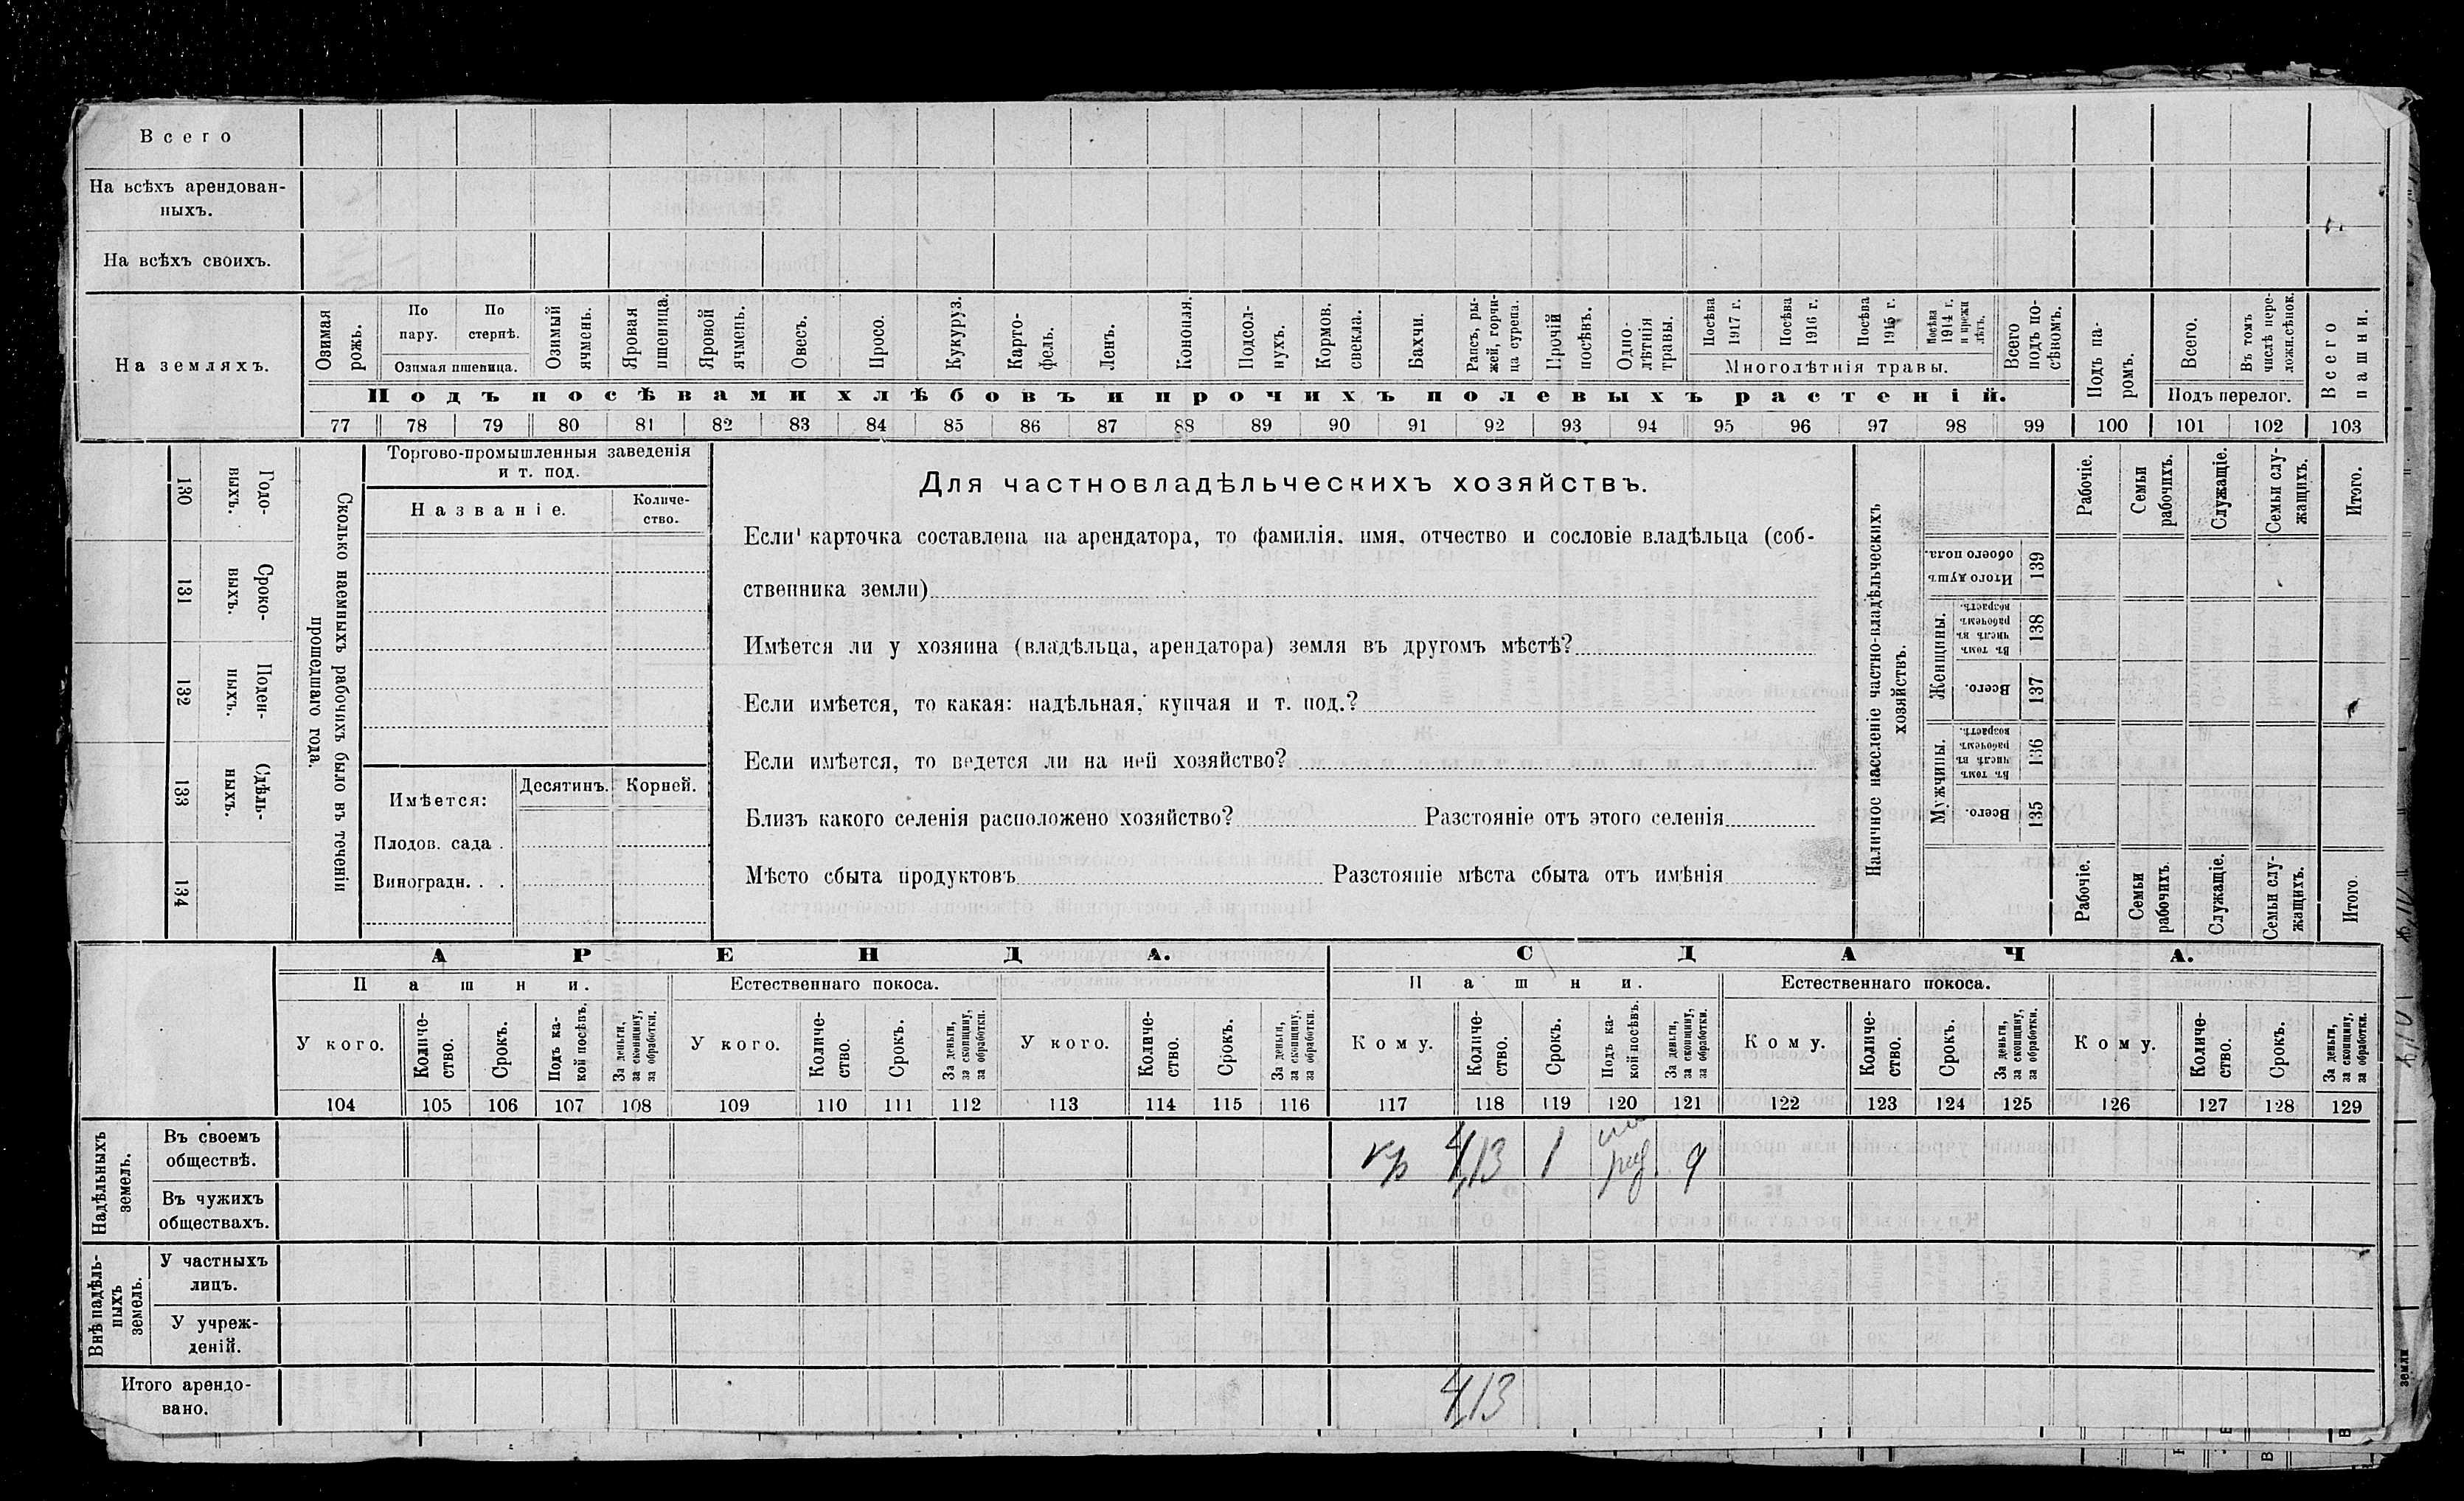 Всего
На всѣхъ арендован-
ныхъ.
На всѣхъ своихъ.
На земляхъ.
Озимая рожь.
По пару.
По стернѣ.
Озимая пшеница.
Озимый ячмень.
Яровая пшеница.
Яровой ячмень.
Овесъ.
Просо.
Кукуруз.
Карто-
фель.
Ленъ.
Конопля.
Подсол-
нухъ.
Кормов.
свекла.
Бахчи.
Рапсъ, ры-
жей, горчи-
ца сурепа.
Прочій посѣвъ.
Одно-
лѣтнія
травы.
Посѣва 1917 г.
Посѣва 1916 г.
Посѣва 1915 г.
Посѣва 1914 г. и прежн лѣтъ.
Многолѣтнія травы.
Всего подъ по-
сѣвомъ.
Подъ па-
ромъ.
Всего.
Въ томъ числѣ пере-
ложн.сѣнок.
Подъ перелог.
Всего пашни.
Подъ посѣвами хлѣбовъ и прочихъ полевыхъ растеній.
77 78 79 80 81 82 83 84 85 86 87 88 89 90 91 92 93 94 95 96 97 98 99 100 101 102 103
130 Годо-
выхъ.
131 Сроко-
выхъ.
132 Поден-
ныхъ.
133 Сдѣль-
ныхъ.
134
Сколько наемныхъ рабочихъ было въ теченіи
прошедшаго года.
Торгово-промышленныя заведенія
и т. под.
Названіе.
Количе-
ство.
Имѣется:
Десятинъ.
Корней.
Плодов. сада .
Виноградн. . .
Для частновладѣльческихъ хозяйствъ.
Если карточка составлена на арендатора, то фамилія, имя, отчество и сословіе владѣльца (соб-
ственника земли)
Имѣется ли у хозяина (владѣльца, арендатора) земля въ другомъ мѣстѣ?
Если имѣется, то какая: надѣльная, купчая и т. под.?
Если имѣется, то ведется ли на ней хозяйство?
Близъ какого селенія расположено хозяйство? Разстояніе отъ этого селенія
Мѣсто сбыта продуктовъ Разстояніе мѣста сбыта отъ имѣнія
Наличное населеніе частно-владѣльческихъ
хозяйствъ.
Рабочіе.
Семьи рабочихъ.
Служащіе.
Семьи слу-
жащихъ.
Итого.
Итого душъ обоего пола. 139
Женщины.
Въ томъ числѣ въ рабочемъ возрастѣ. 138
Всего. 137
Мужчины.
Въ томъ числѣ въ рабочемъ возрастѣ. 136
Всего. 135
Рабочіе.
Семьи рабочихъ.
Служащіе.
Семьи слу-
жащихъ.
Итого.
АРЕНДА.
СДАЧА.
Пашни.
Естественнаго покоса.
Пашни.
Естественнаго покоса.
У кого.
Количе-
ство.
Срокъ.
Подъ ка-
кой посѣвъ.
За деньги,
за скопщину,
за обработки.
У кого.
Количе-
ство.
Срокъ.
За деньги,
за скопщину,
за обработки.
У кого.
Количе-
ство.
Срокъ.
За деньги,
за скопщину,
за обработки.
Кому.
Количе-
ство.
Срокъ.
Подъ ка-
кой посѣвъ.
За деньги,
за скопщину,
за обработки.
Кому.
Количе-
ство.
Срокъ.
За деньги,
за скопщину,
за обработки.
Кому.
Количе-
ство.
Срокъ.
За деньги,
за скопщину,
за обработки.
104 105 106 107 108 109 110 111 112 113 114 115 116 117 118 119 120 121 122 123 124 125 126 127 128 129
Надѣльныхъ
земель.
Въ своемъ
обществѣ.
кр 4,13 1
Въ чужихъ
обществахъ.
Внѣ надѣль-
ныхъ
земель.
У частныхъ
лицъ.
У учреж-
деній.
Итого арендо-
вано.
4,13
земли